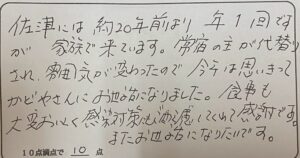 佐津には 約20年前より 年1回です
が 家族で来ています。常宿の主が代替り
され、雰囲気が変わったので 今年は思いきって
かどやさんに お世話になりました。食事も
大変おいしく 感染対策も ご配慮してくれて 感謝です。
またお世話になりたいです。
10点満点で 10 点